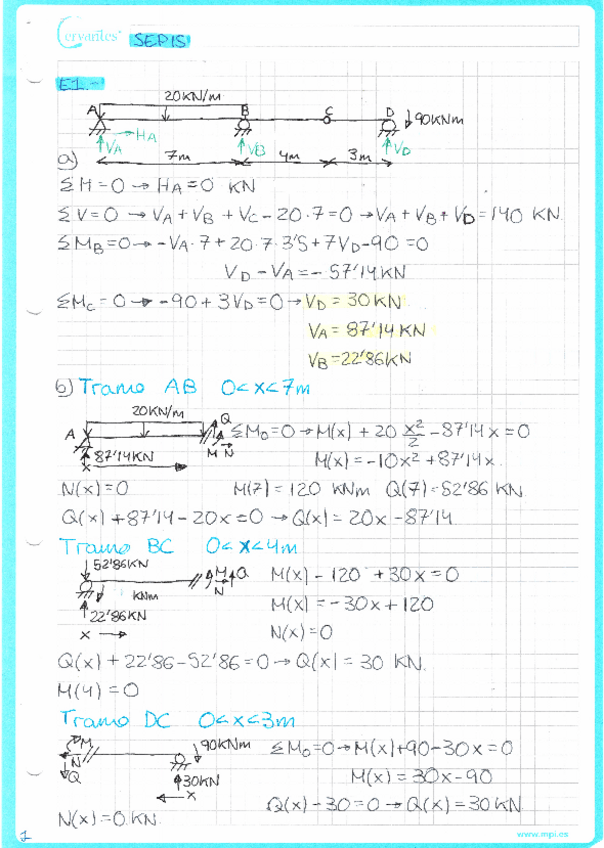 Cervantes SEPIS
E1.-
20KN/m
A B C D 90KNm
HA
VA VB VD
a) 7m 4m 3m
ΣH=0 → HA=0 KN
ΣV=0 → VA+VB+VC-20·7=0 → VA+VB+VD=140 KN.
ΣMB=0 → -VA·7+20·7·3'5+7VD-90=0
VD-VA=-57'14 KN
ΣMC=0 → -90+3VD=0 → VD=30KN
VA=87'14 KN
VB=22'86KN
b) Tramo AB 0<x<7m
20KN/m
A Q ΣM0=0 → M(x)+20 x²/2 -87'14x=0
87'14KN M N
x M(x)=-10x²+87'14x
N(x)=0 M(7)=120 KNm Q(7)=52'86 KN
Q(x)+87'14-20x=0 → Q(x)=20x-87'14
Tramo BC 0<x<4m
52'86KN M Q M(x)-120+30x=0
N
KNm
22'86KN M(x)=-30x+120
x N(x)=0
Q(x)+22'86-52'86=0 → Q(x)=30 KN.
M(4)=0
Tramo DC 0<x<3m
M 90KNm ΣM0=0 → M(x)+90-30x=0
N
Q 30KN M(x)=30x-90
x Q(x)-30=0 → Q(x)=30KN
N(x)=0 KN.
1 www.mpi.es